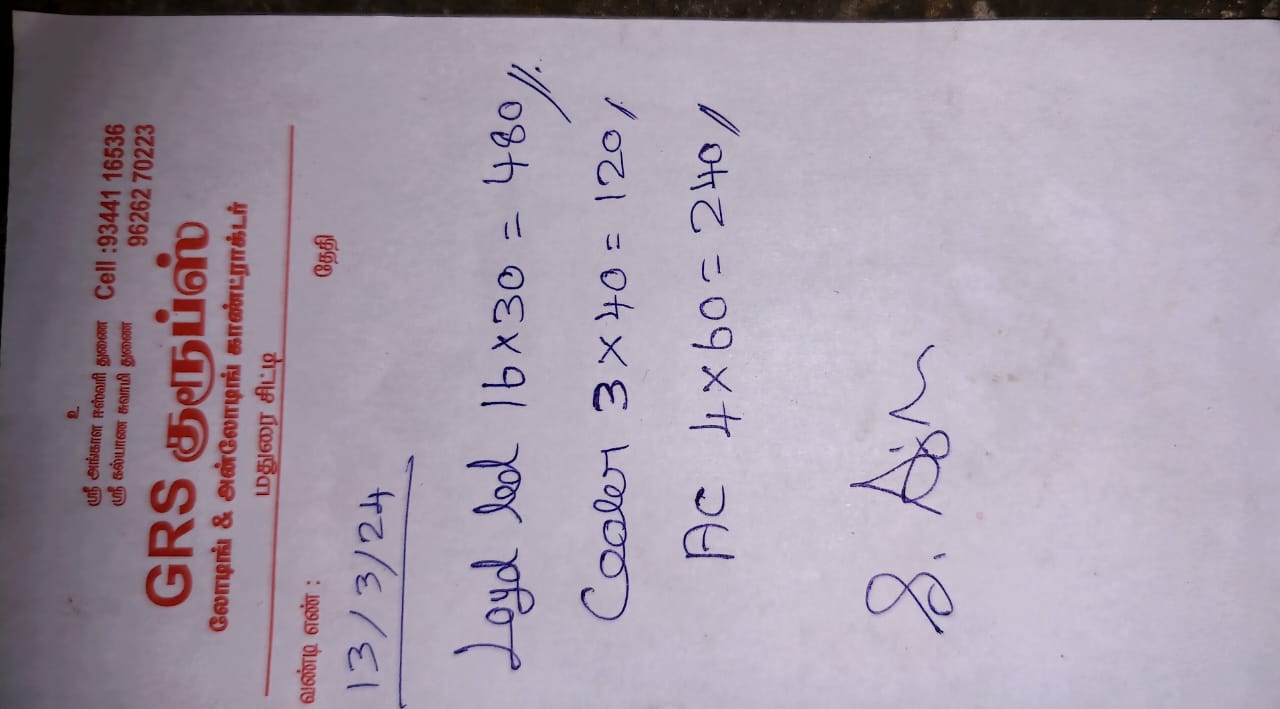 உ
ஸ்ரீ அங்காள ஈஸ்வரி துணை Cell :93441 16536
ஸ்ரீ கல்யாண சுவாமி துணை 96262 70223
GRS குரூப்ஸ்
லோடிங் & அன்லோடிங் காண்ட்ராக்டர்
மதுரை சிட்டி
வண்டி எண் : தேதி
13/3/24
Loyd led 16 x 30 = 480 //.
Cooler 3 x 40 = 120 /.
AC 4 x 60 = 240 //